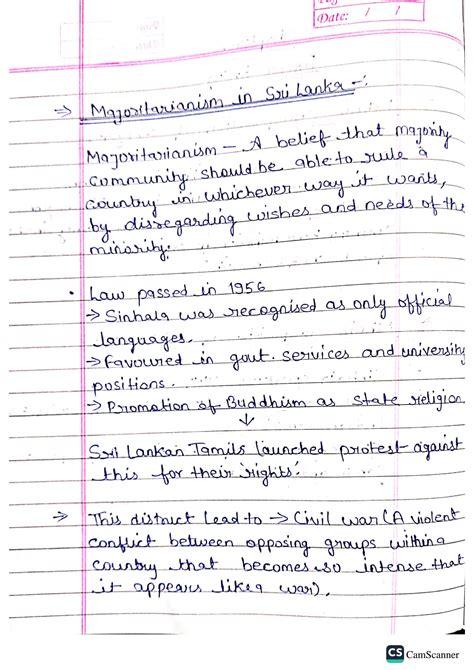 Date: / /
→ Majoritarianism in Sri Lanka -:
Majoritarianism - A belief that majority
community should be able to rule a
country in whichever way it wants,
by disregarding wishes and needs of the
minority.
• Law passed in 1956
→ Sinhala was recognised as only official
languages.
→ Favoured in govt. services and university
positions.
→ Promotion of Buddhism as state religion
↓
Sri Lankan Tamils launched protest against
this for their rights.
⇒ This district lead to → Civil war (A violent
conflict between opposing groups within a
country that becomes so intense that
it appears like a war).
CS CamScanner